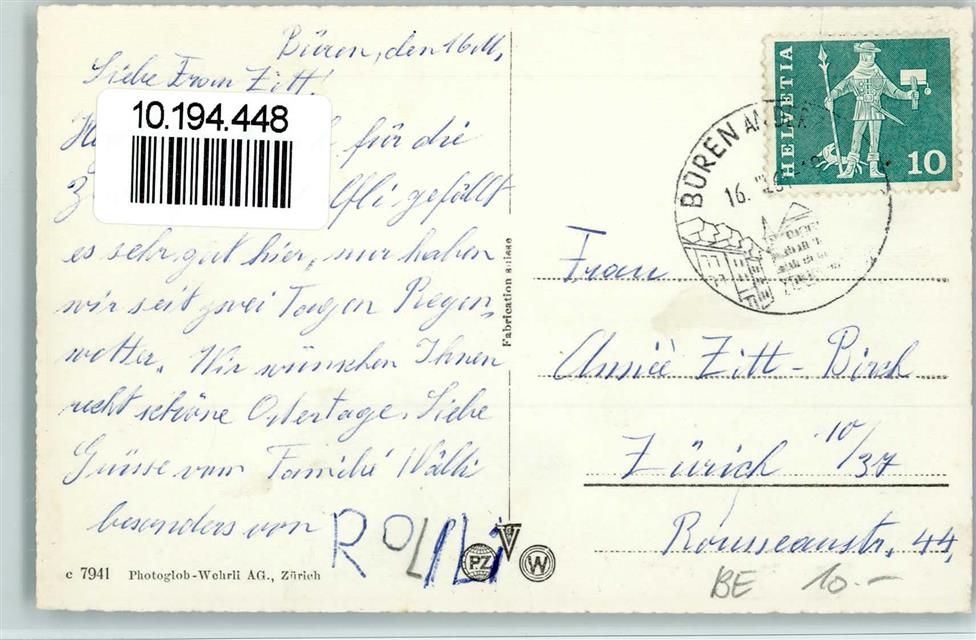 Büren, den 16.
Liebe Frau Zitt!
10.194.448
für die
gefällt
es sehr gut hier, nur haben
wir seit zwei Tagen Regen-
wetter. Wir wünschen Ihnen
recht schöne Ostertage. Liebe
Grüsse von Familie Wälli
besonders von ROLLi
c 7941 Photoglob-Wehrli AG., Zürich
Fabrication suisse
PZ
W
HELVETIA
10
BÜREN AN DER
16.
Frau
Annie Zitt - Birch
Zürich 10/37
Rousseaustr. 44
BE 10.-